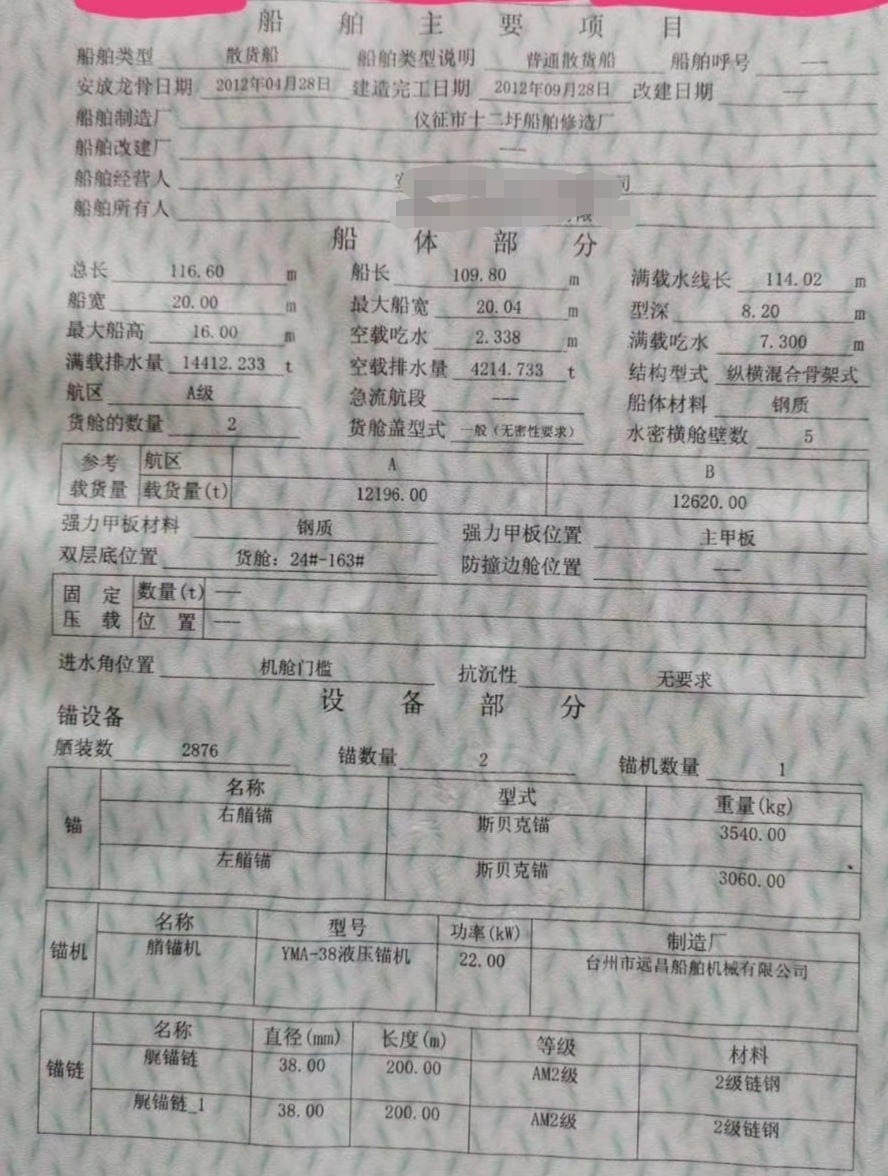 船舶主要项目
船舶类型 散货船 船舶类型说明 普通散货船 船舶呼号 ---
安放龙骨日期 2012年04月28日 建造完工日期 2012年09月28日 改建日期 ---
船舶制造厂 仪征市十二圩船舶修造厂
船舶改建厂 ---
船舶经营人 司
船舶所有人
船体部分
总长 116.60 m 船长 109.80 m 满载水线长 114.02 m
船宽 20.00 m 最大船宽 20.04 m 型深 8.20 m
最大船高 16.00 m 空载吃水 2.338 m 满载吃水 7.300 m
满载排水量 14412.233 t 空载排水量 4214.733 t 结构型式 纵横混合骨架式
航区 A级 急流航段 --- 船体材料 钢质
货舱的数量 2 货舱盖型式 一般(无密性要求) 水密横舱壁数 5
参考 航区 A B
载货量 载货量(t) 12196.00 12620.00
强力甲板材料 钢质 强力甲板位置 主甲板
双层底位置 货舱：24#-163# 防撞边舱位置 ---
固定 数量(t) ---
压载 位置 ---
进水角位置 机舱门槛 抗沉性 无要求
设备部分
锚设备
舾装数 2876 锚数量 2 锚机数量 1
名称 型式 重量(kg)
锚 右艏锚 斯贝克锚 3540.00
左艏锚 斯贝克锚 3060.00
名称 型号 功率(kW) 制造厂
锚机 艏锚机 YMA-38液压锚机 22.00 台州市远昌船舶机械有限公司
名称 直径(mm) 长度(m) 等级 材料
锚链 艉锚链 38.00 200.00 AM2级 2级链钢
艉锚链_1 38.00 200.00 AM2级 2级链钢